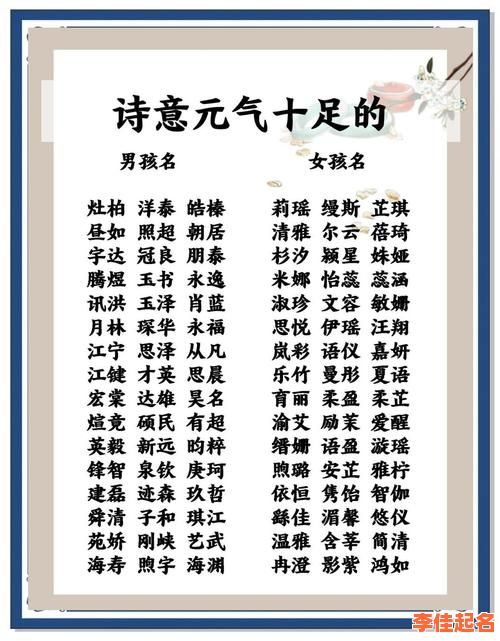 诗意元气十足的
男孩名 女孩名
灶柏 洋泰 皓榛 莉瑶 缦斯 芷琪
昼如 照超 朝居 清雅 尔云 蓓琦
宇达 冠良 朋泰 杉汐 颖星 姝娅
腾煜 玉书 永逸 米娜 怡蕊 蕊涵
讯洪 玉泽 肖蓝 淑珍 文容 敏姗
月林 琛华 永福 思悦 伊瑶 汪翔
江宁 思泽 从凡 岚彩 语仪 嘉妍
江键 才英 思晨 乐竹 曼彤 夏语
宏棠 达雄 昊名 育丽 柔盈 柔芷
煊竟 硕民 有超 渝艾 励茉 爱醒
英毅 新远 昀粹 缙姗 语盈 漩瑶
锋智 泉钦 庚珂 煦璐 安芷 雅柠
建磊 迹森 玖哲 依恒 隽饴 智伽
舜清 子和 琪江 繇佳 湄馨 悠仪
苑娇 刚峡 艺武 温雅 含莘 简清
海寿 煦字 海渊 冉澄 影紫 鸿如
李佳起名